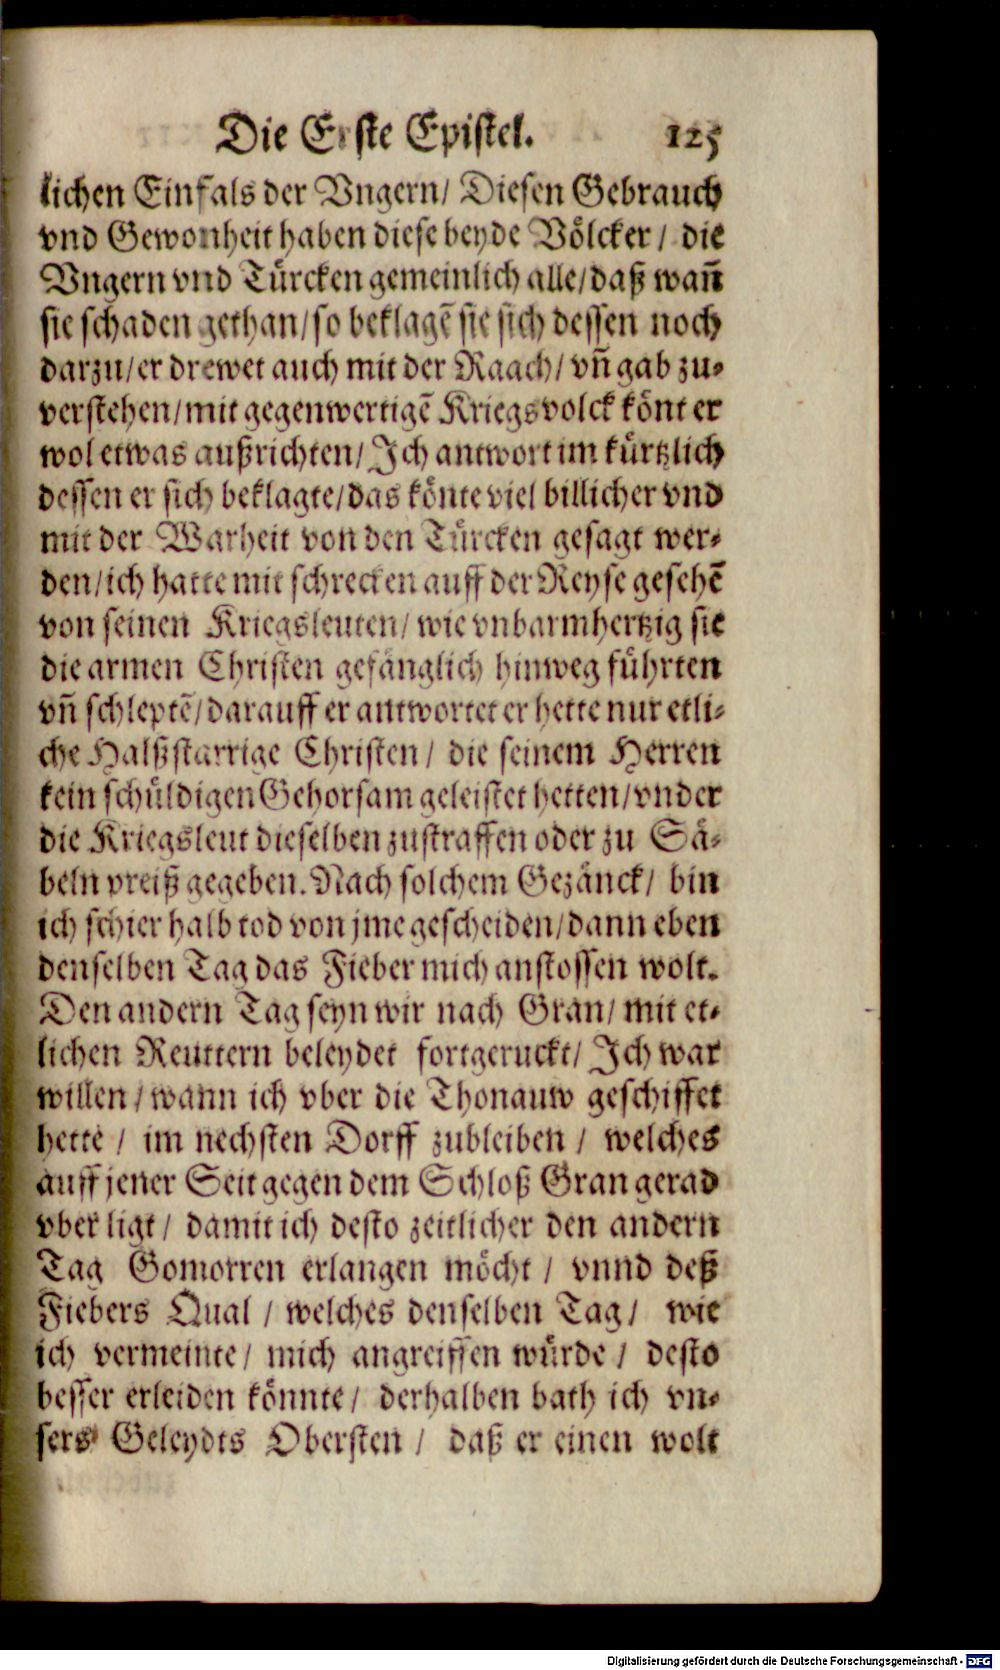 Die Erste Epistel. 125
lichen Einfals der Vngern/ Diesen Gebrauch
vnd Gewonheit haben diese beyde Völcker/ die
Vngern vnd Türcken gemeinlich alle/daß wañ
sie schaden gethan/so beklagẽ sie sich dessen noch
darzu/er drewet auch mit der Raach/ vñ gab zu-
verstehen/mit gegenwertigẽ Kriegsvolck könt er
wol etwas außrichten/Ich antwort im kürtzlich
dessen er sich beklagte/das könte viel billicher vnd
mit der Warheit von den Türcken gesagt wer-
den/ich hatte mit schrecken auff der Reyse gesehẽ
von seinen Kriegsleuten/ wie vnbarmhertzig sie
die armen Christen gefänglich hinweg führten
vñ schleptẽ/darauff er antwortet er hette nur etli-
che Halßstarrige Christen/ die seinem Herren
kein schüldigen Gehorsam geleistet hetten/vnder
die Kriegsleut dieselben zustraffen oder zu Sä-
beln preiß gegeben. Nach solchem Gezänck/ bin
ich schier halb tod von jme gescheiden/dann eben
denselben Tag das Fieber mich anstossen wolt.
Den andern Tag seyn wir nach Gran/ mit et-
lichen Reuttern beleydet fortgeruckt/ Ich war
willen/wann ich vber die Thonauw geschiffet
hette / im nechsten Dorff zubleiben / welches
auff jener Seit gegen dem Schloß Gran gerad
vber ligt/ damit ich desto zeitlicher den andern
Tag Gomorren erlangen möcht / vnnd deß
Fiebers Qual / welches denselben Tag/ wie
ich vermeinte/ mich angreiffen würde / desto
besser erleiden könnte/ derhalben bath ich vn-
sers Geleydts Obersten / daß er einen wolt
Digitalisierung gefördert durch die Deutsche Forschungsgemeinschaft - DFG